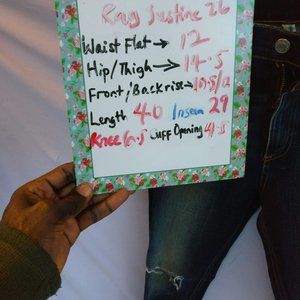 Rag Justine 26
Waist Flat → 12
Hip/Thigh → 14.5
Front/Back rise → 10.5/12
Length 40 Inseam 29
Knee 6.5 Cuff Opening 4.5